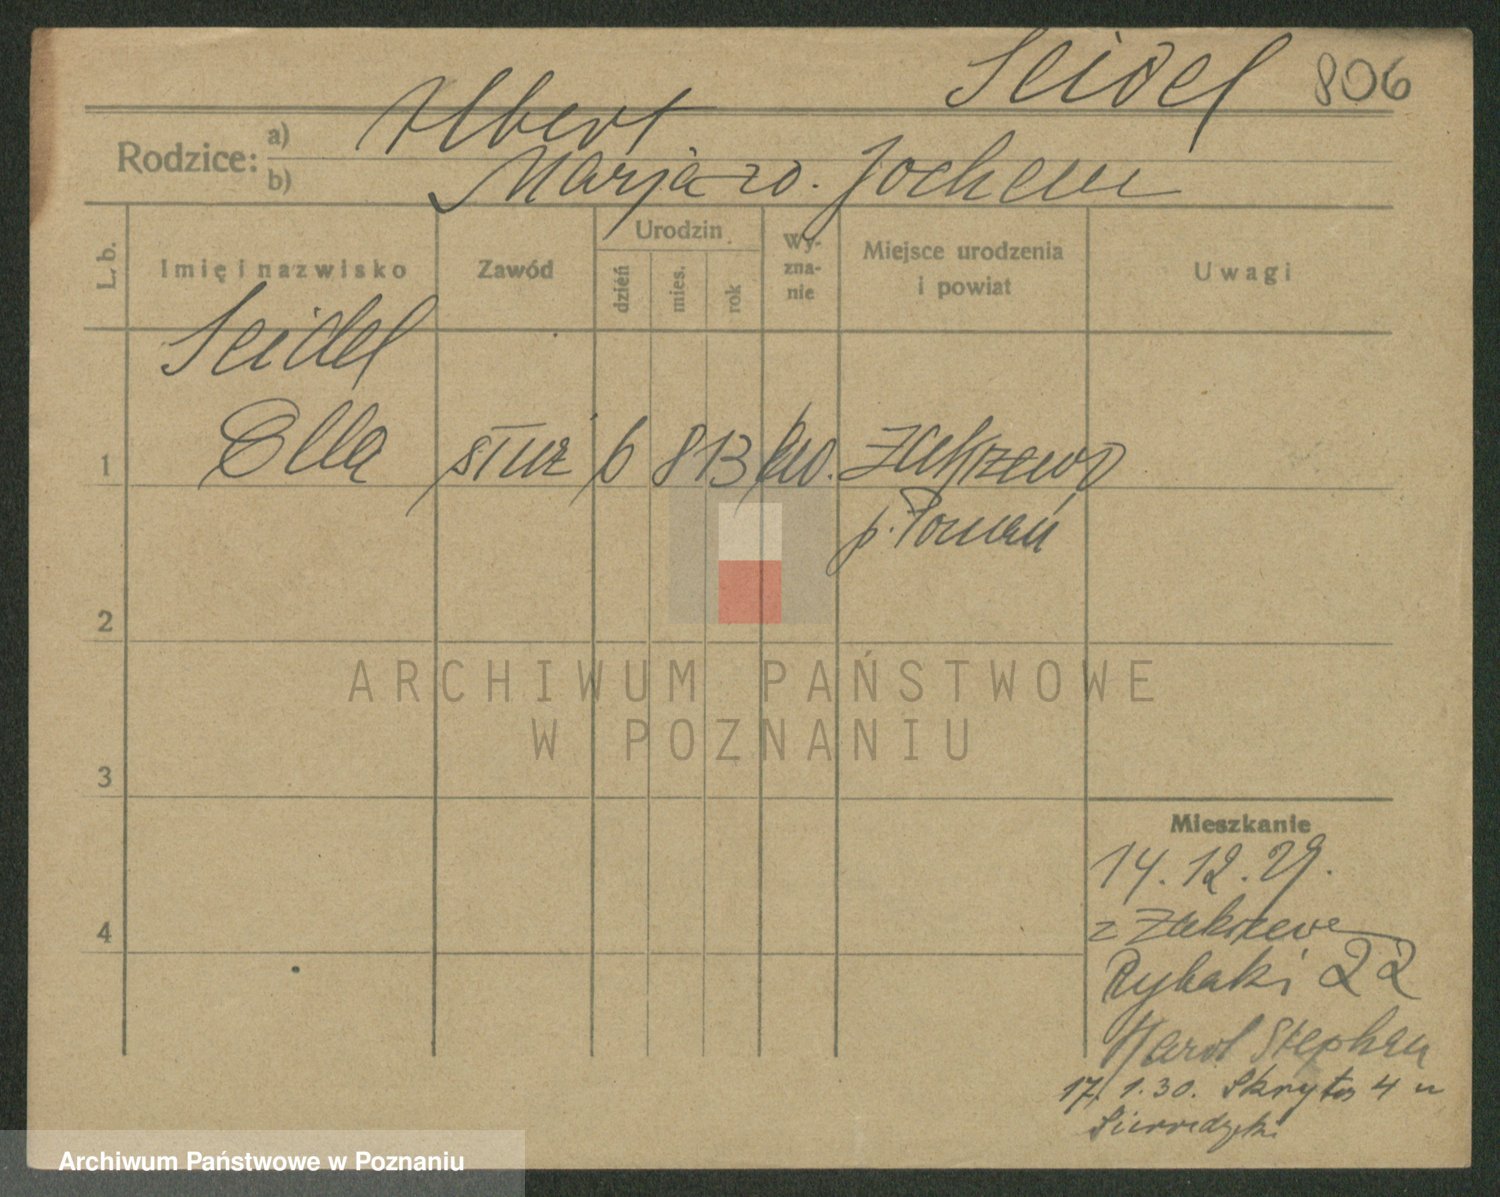 Seidel 806
Rodzice:
a) Albert
b) Marja zd. Jochem
L. b.
Imię i nazwisko
Zawód
Urodzin
dzień
mies.
rok
Wy-
zna-
nie
Miejsce urodzenia
i powiat
Uwagi
Seidel
1 Ella służ 6 8 13 ew. Zakrzewo
p. Poznań
2
ARCHIWUM PAŃSTWOWE
W POZNANIU
3
Mieszkanie
14.12.29.
z Zakrzewa
4
Rybaki 22
Karol Stephan
17.1.30. Skryta 4 u
Archiwum Państwowe w Poznaniu